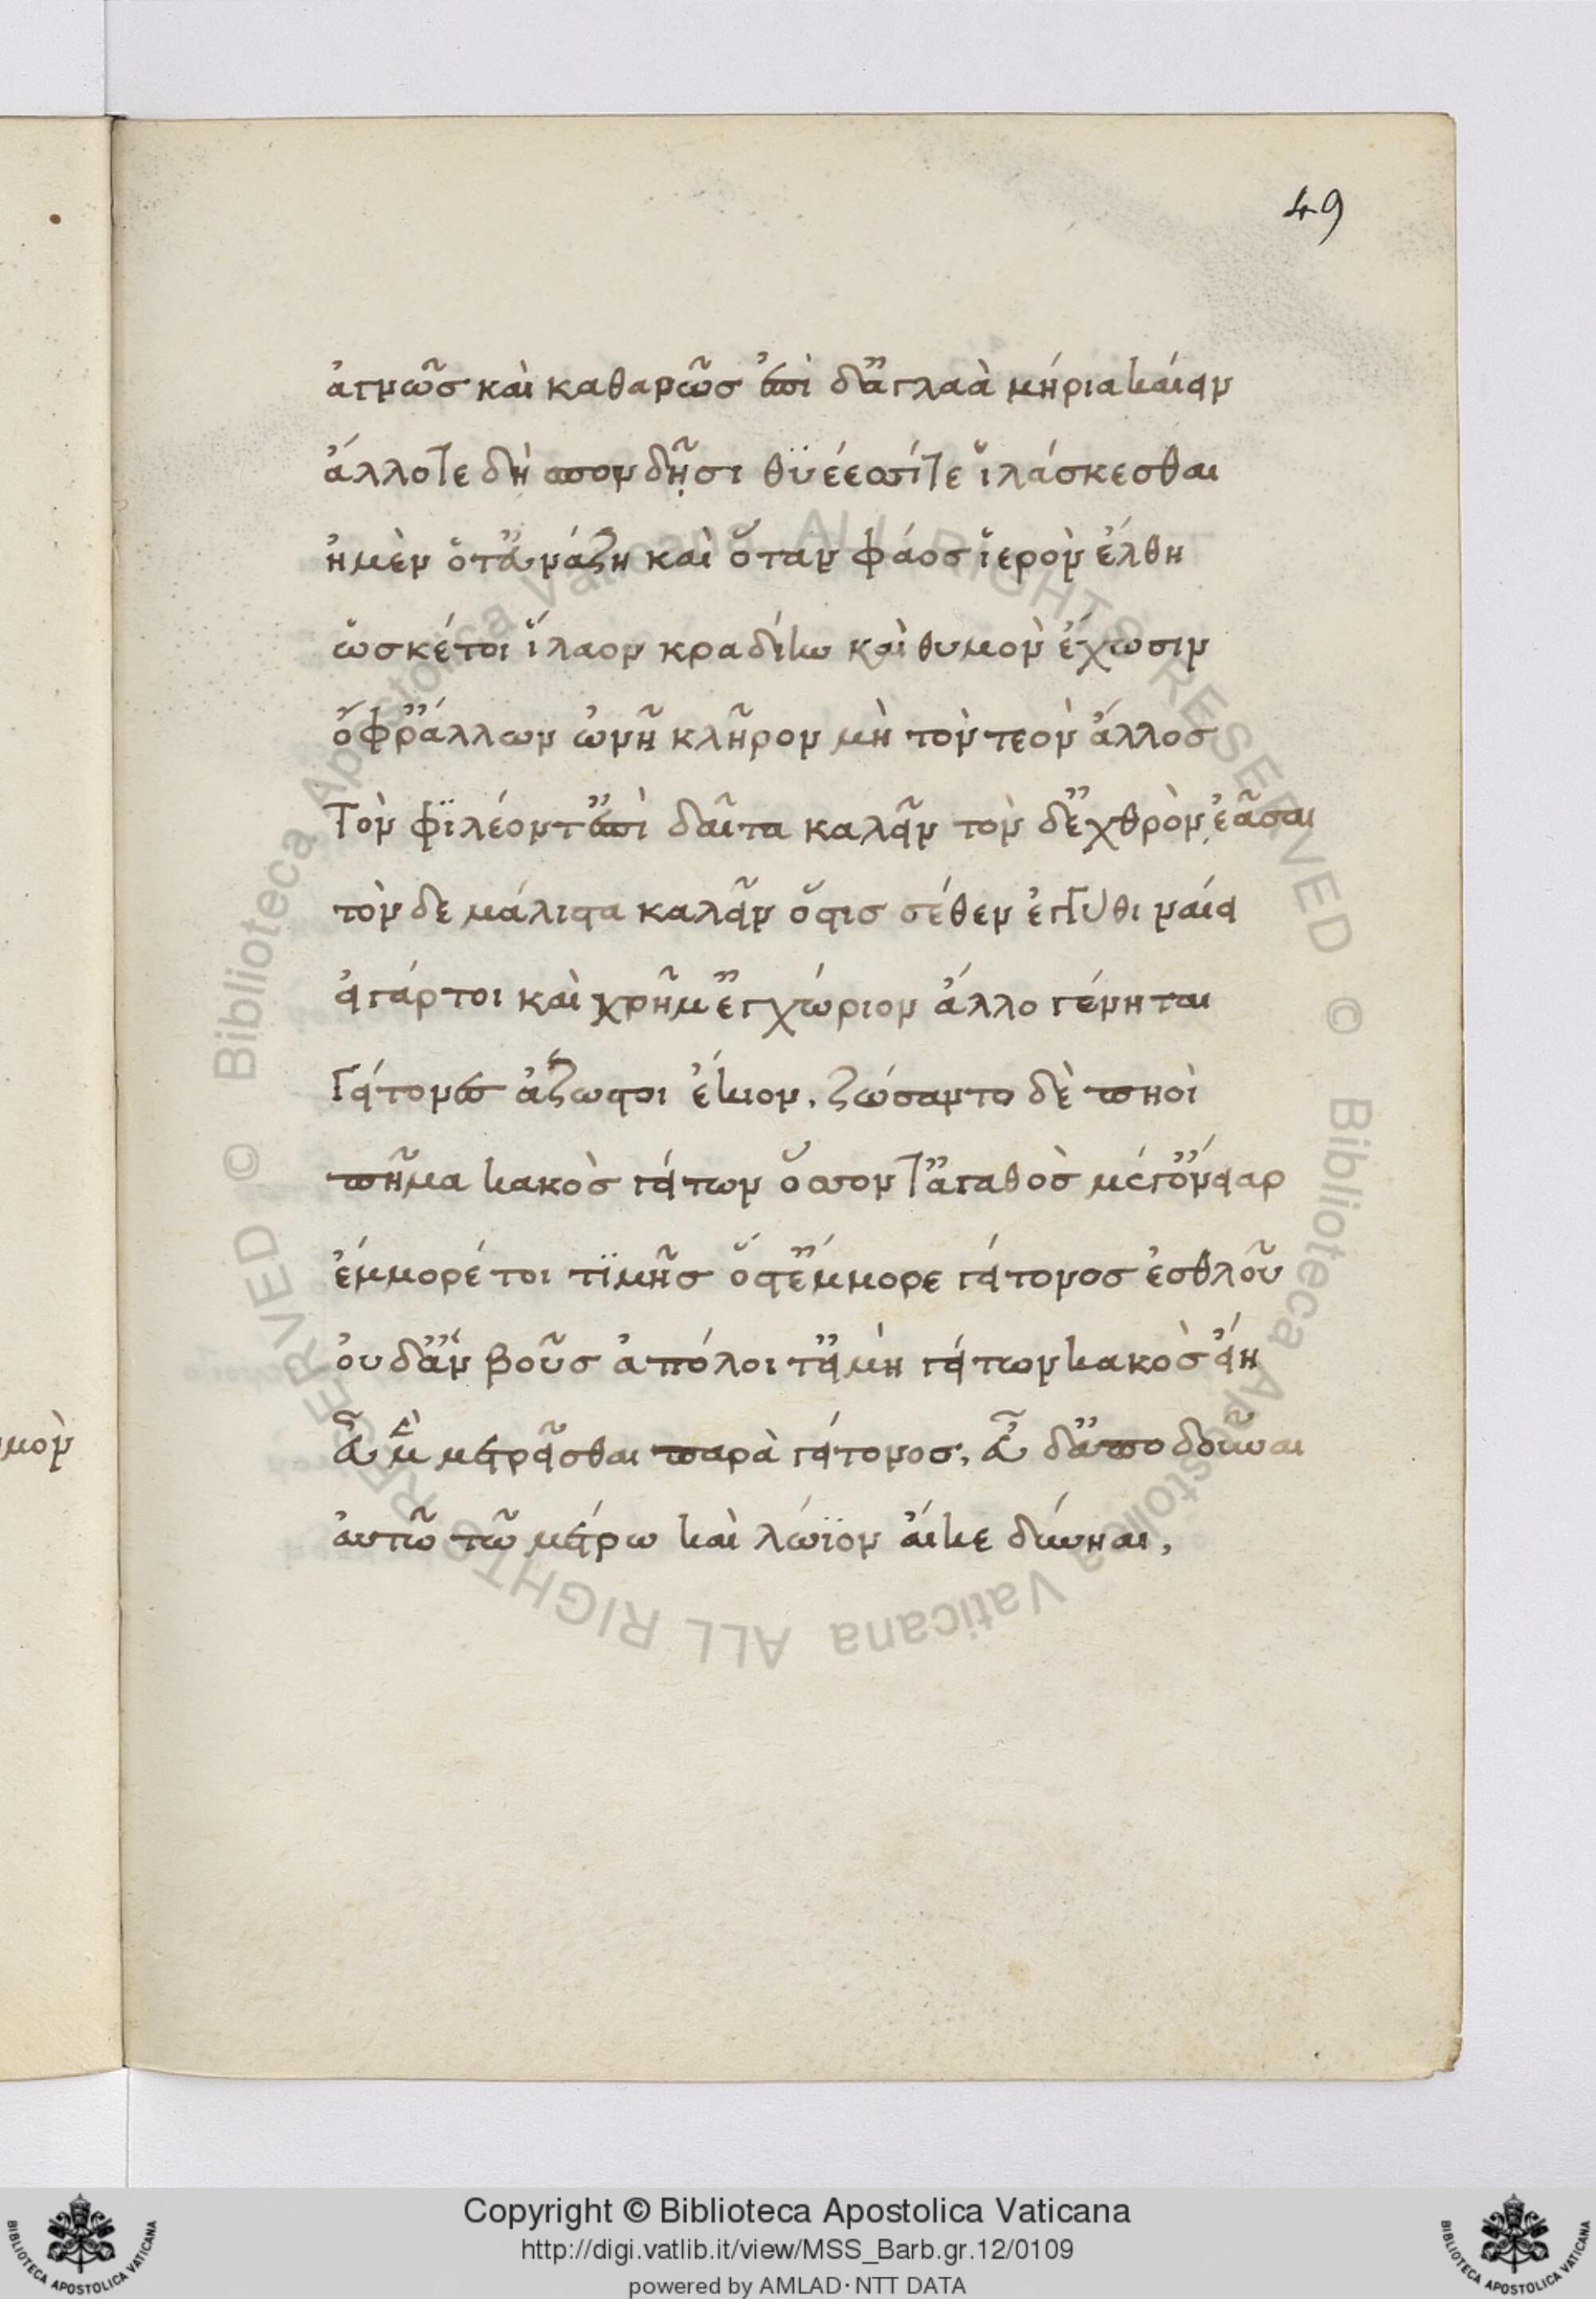 49
ἁγνῶς καὶ καθαρῶς ἐπὶ δ᾽ ἀγλαὰ μήρια καίειν
ἄλλοτε δὴ σπονδῇσι θϋέεσσί τε ἱλάσκεσθαι
ἠμὲν ὅτ᾽ εὐνάζῃ καὶ ὅταν φάος ἱερὸν ἔλθῃ
ὥς κέ τοι ἵλαον κραδίην καὶ θυμὸν ἔχωσιν
ὄφρ᾽ ἄλλων ὠνῇ κλῆρον μὴ τὸν τεὸν ἄλλος
Τὸν φϊλέοντ᾽ ἐπὶ δαῖτα καλεῖν τὸν δ᾽ ἐχθρὸν ἐᾶσαι
τὸν δε μάλιστα καλεῖν ὅστις σέθεν ἐγγύθι ναίει
εἰ γάρ τοι καὶ χρῆμ᾽ ἐγχώριον ἄλλο γένηται
Γείτονες ἄζωστοι ἔκιον, ζώσαντο δὲ πηοὶ
πῆμα κακὸς γείτων ὅσσον τ᾽ ἀγαθὸς μέγ᾽ ὄνειαρ
ἔμμορέ τοι τϊμῆς ὅστ᾽ ἔμμορε γείτονος ἐσθλοῦ
οὐδ᾽ ἂν βοῦς ἀπόλοιτ᾽ εἰ μὴ γείτων κακὸς εἴη
εὖ μὲν μετρεῖσθαι παρὰ γείτονος, εὖ δ᾽ ἀποδοῦναι
αὐτῷ τῷ μέτρῳ καὶ λώϊον αἴ κε δύνηαι,
μὸν
Copyright © Biblioteca Apostolica Vaticana
http://digi.vatlib.it/view/MSS_Barb.gr.12/0109
powered by AMLAD·NTT DATA
© Biblioteca Apostolica Vaticana ALL RIGHTS RESERVED
© Biblioteca Apostolica Vaticana ALL RIGHTS RESERVED
BIBLIOTECA APOSTOLICA VATICANA
BIBLIOTECA APOSTOLICA VATICANA